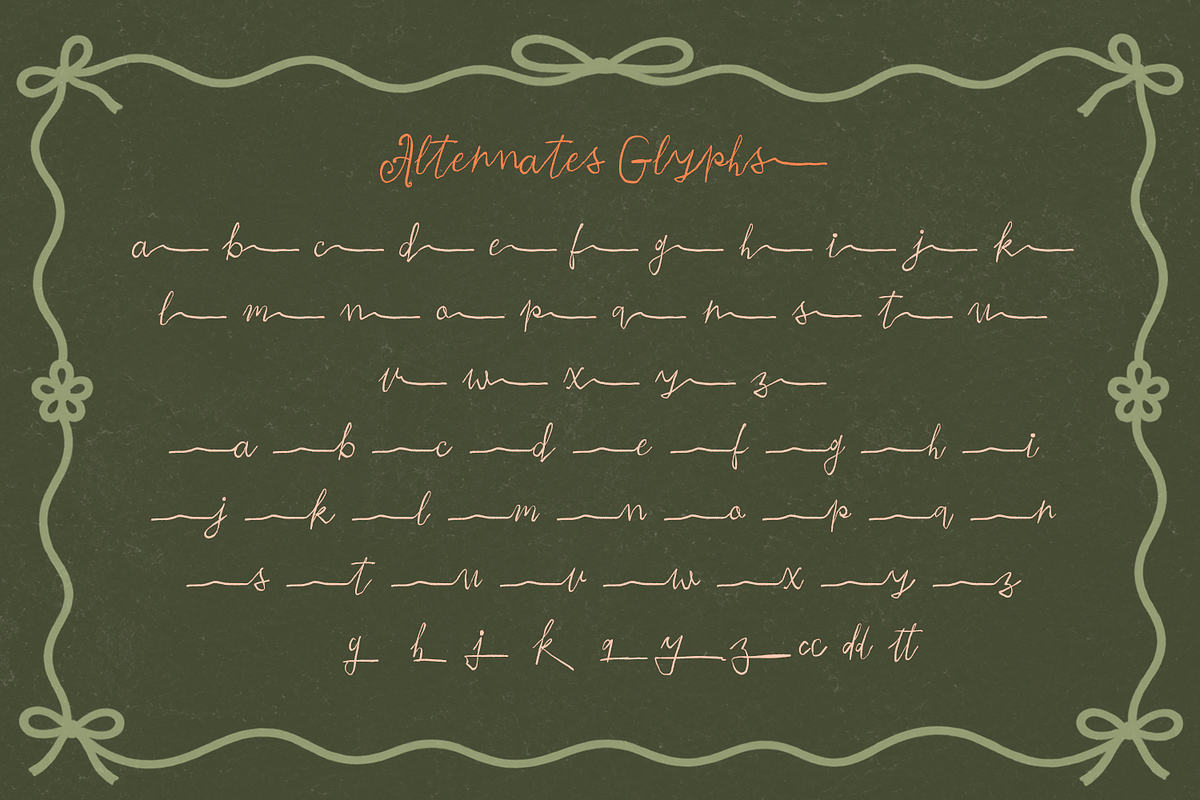 Alternates Glyphs
a b c d e f g h i j k
l m n o p q r s t u
v w x y z
a b c d e f g h i
j k l m n o p q r
s t u v w x y z
g h j k q y z cc dd tt